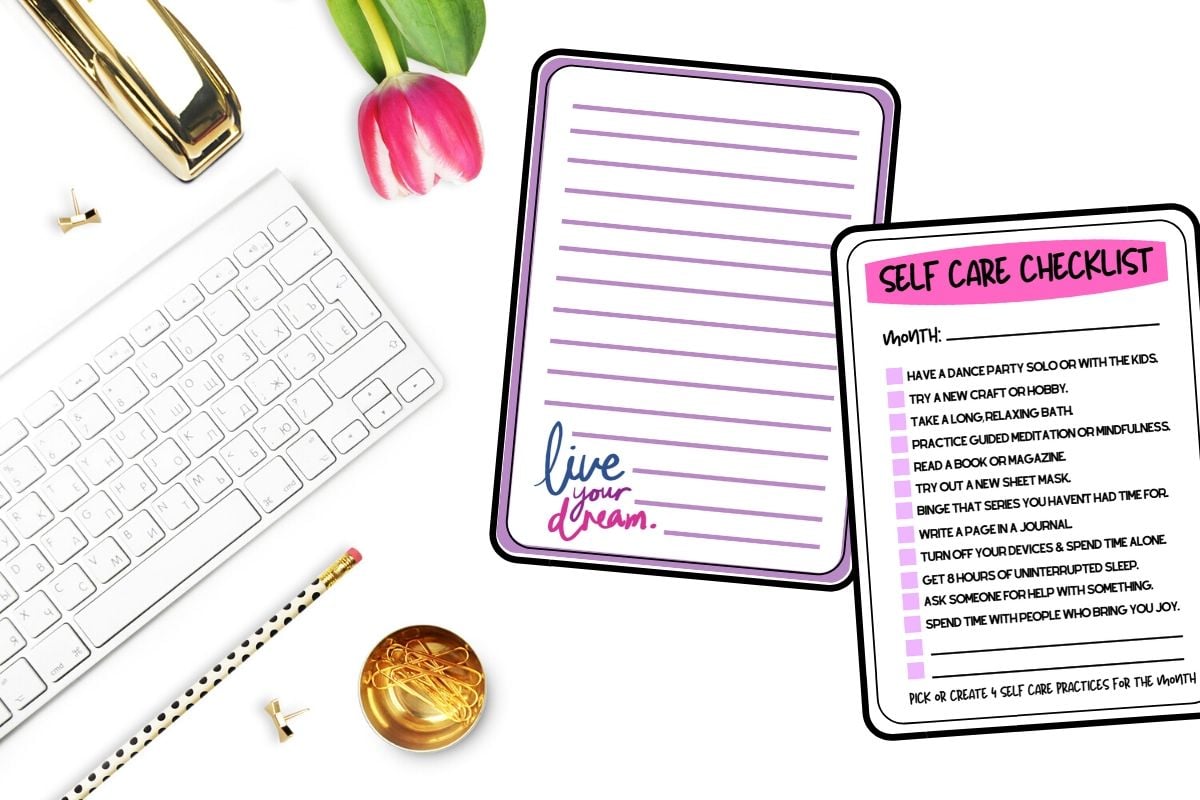 live
your
dream.
SELF CARE CHECKLIST
MONTH:
HAVE A DANCE PARTY SOLO OR WITH THE KIDS.
TRY A NEW CRAFT OR HOBBY.
TAKE A LONG, RELAXING BATH.
PRACTICE GUIDED MEDITATION OR MINDFULNESS.
READ A BOOK OR MAGAZINE.
TRY OUT A NEW SHEET MASK.
BINGE THAT SERIES YOU HAVENT HAD TIME FOR.
WRITE A PAGE IN A JOURNAL.
TURN OFF YOUR DEVICES & SPEND TIME ALONE.
GET 8 HOURS OF UNINTERRUPTED SLEEP.
ASK SOMEONE FOR HELP WITH SOMETHING.
SPEND TIME WITH PEOPLE WHO BRING YOU JOY.
PICK OR CREATE 4 SELF CARE PRACTICES FOR THE MONTH